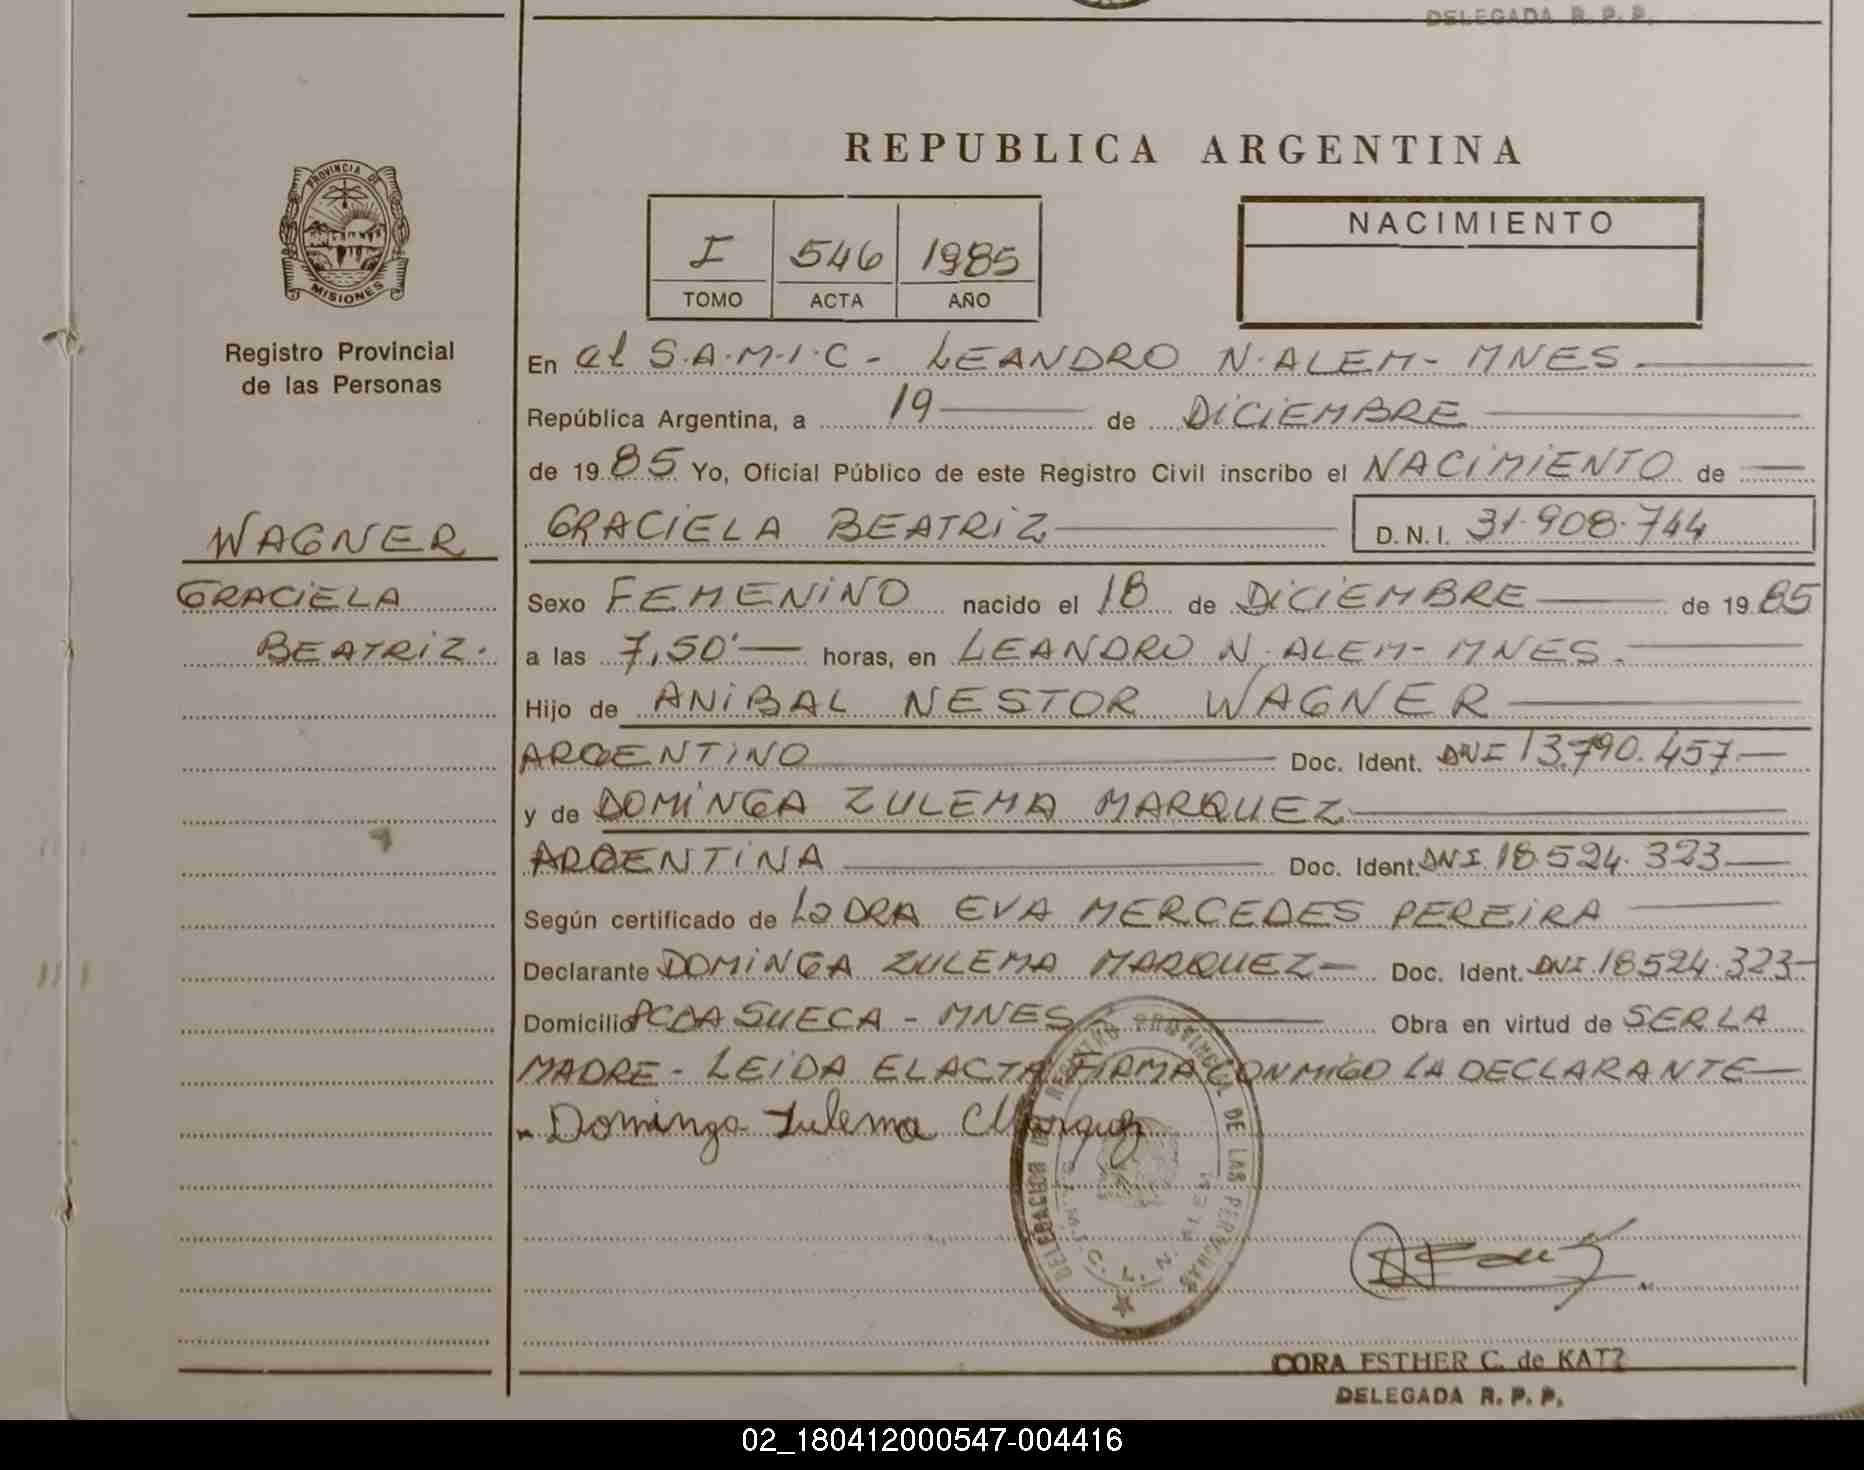 DELEGADA R. P. P.
REPUBLICA ARGENTINA
PROVINCIA DE
MISIONES
Registro Provincial
de las Personas
I 546 1985
TOMO ACTA AÑO
NACIMIENTO
En el S.A.M.I.C - LEANDRO N. ALEM - MNES.
República Argentina, a 19 de DICIEMBRE
de 1985 Yo, Oficial Público de este Registro Civil inscribo el NACIMIENTO de
WAGNER
GRACIELA BEATRIZ D.N.I. 31.908.744
GRACIELA
BEATRIZ.
Sexo FEMENINO nacido el 18 de DICIEMBRE de 1985
a las 7,50' horas, en LEANDRO N. ALEM - MNES.
Hijo de ANIBAL NESTOR WAGNER
ARGENTINO Doc. Ident. DNI 13.790.457
y de DOMINGA ZULEMA MARQUEZ
ARGENTINA Doc. Ident. DNI 18.524.323
Según certificado de La DRA EVA MERCEDES PEREIRA
Declarante DOMINGA ZULEMA MARQUEZ Doc. Ident. DNI 18524.323
Domicilio PCDA SUECA - MNES Obra en virtud de SER LA
MADRE - LEIDA EL ACTA FIRMA CONMIGO LA DECLARANTE
Dominga Zulema Marquez
DELEGACION DEL REGISTRO PROVINCIAL DE LAS PERSONAS
S.A.M.I.C. L. N. ALEM
CORA ESTHER C. de KATZ
DELEGADA R. P. P.
02_180412000547-004416